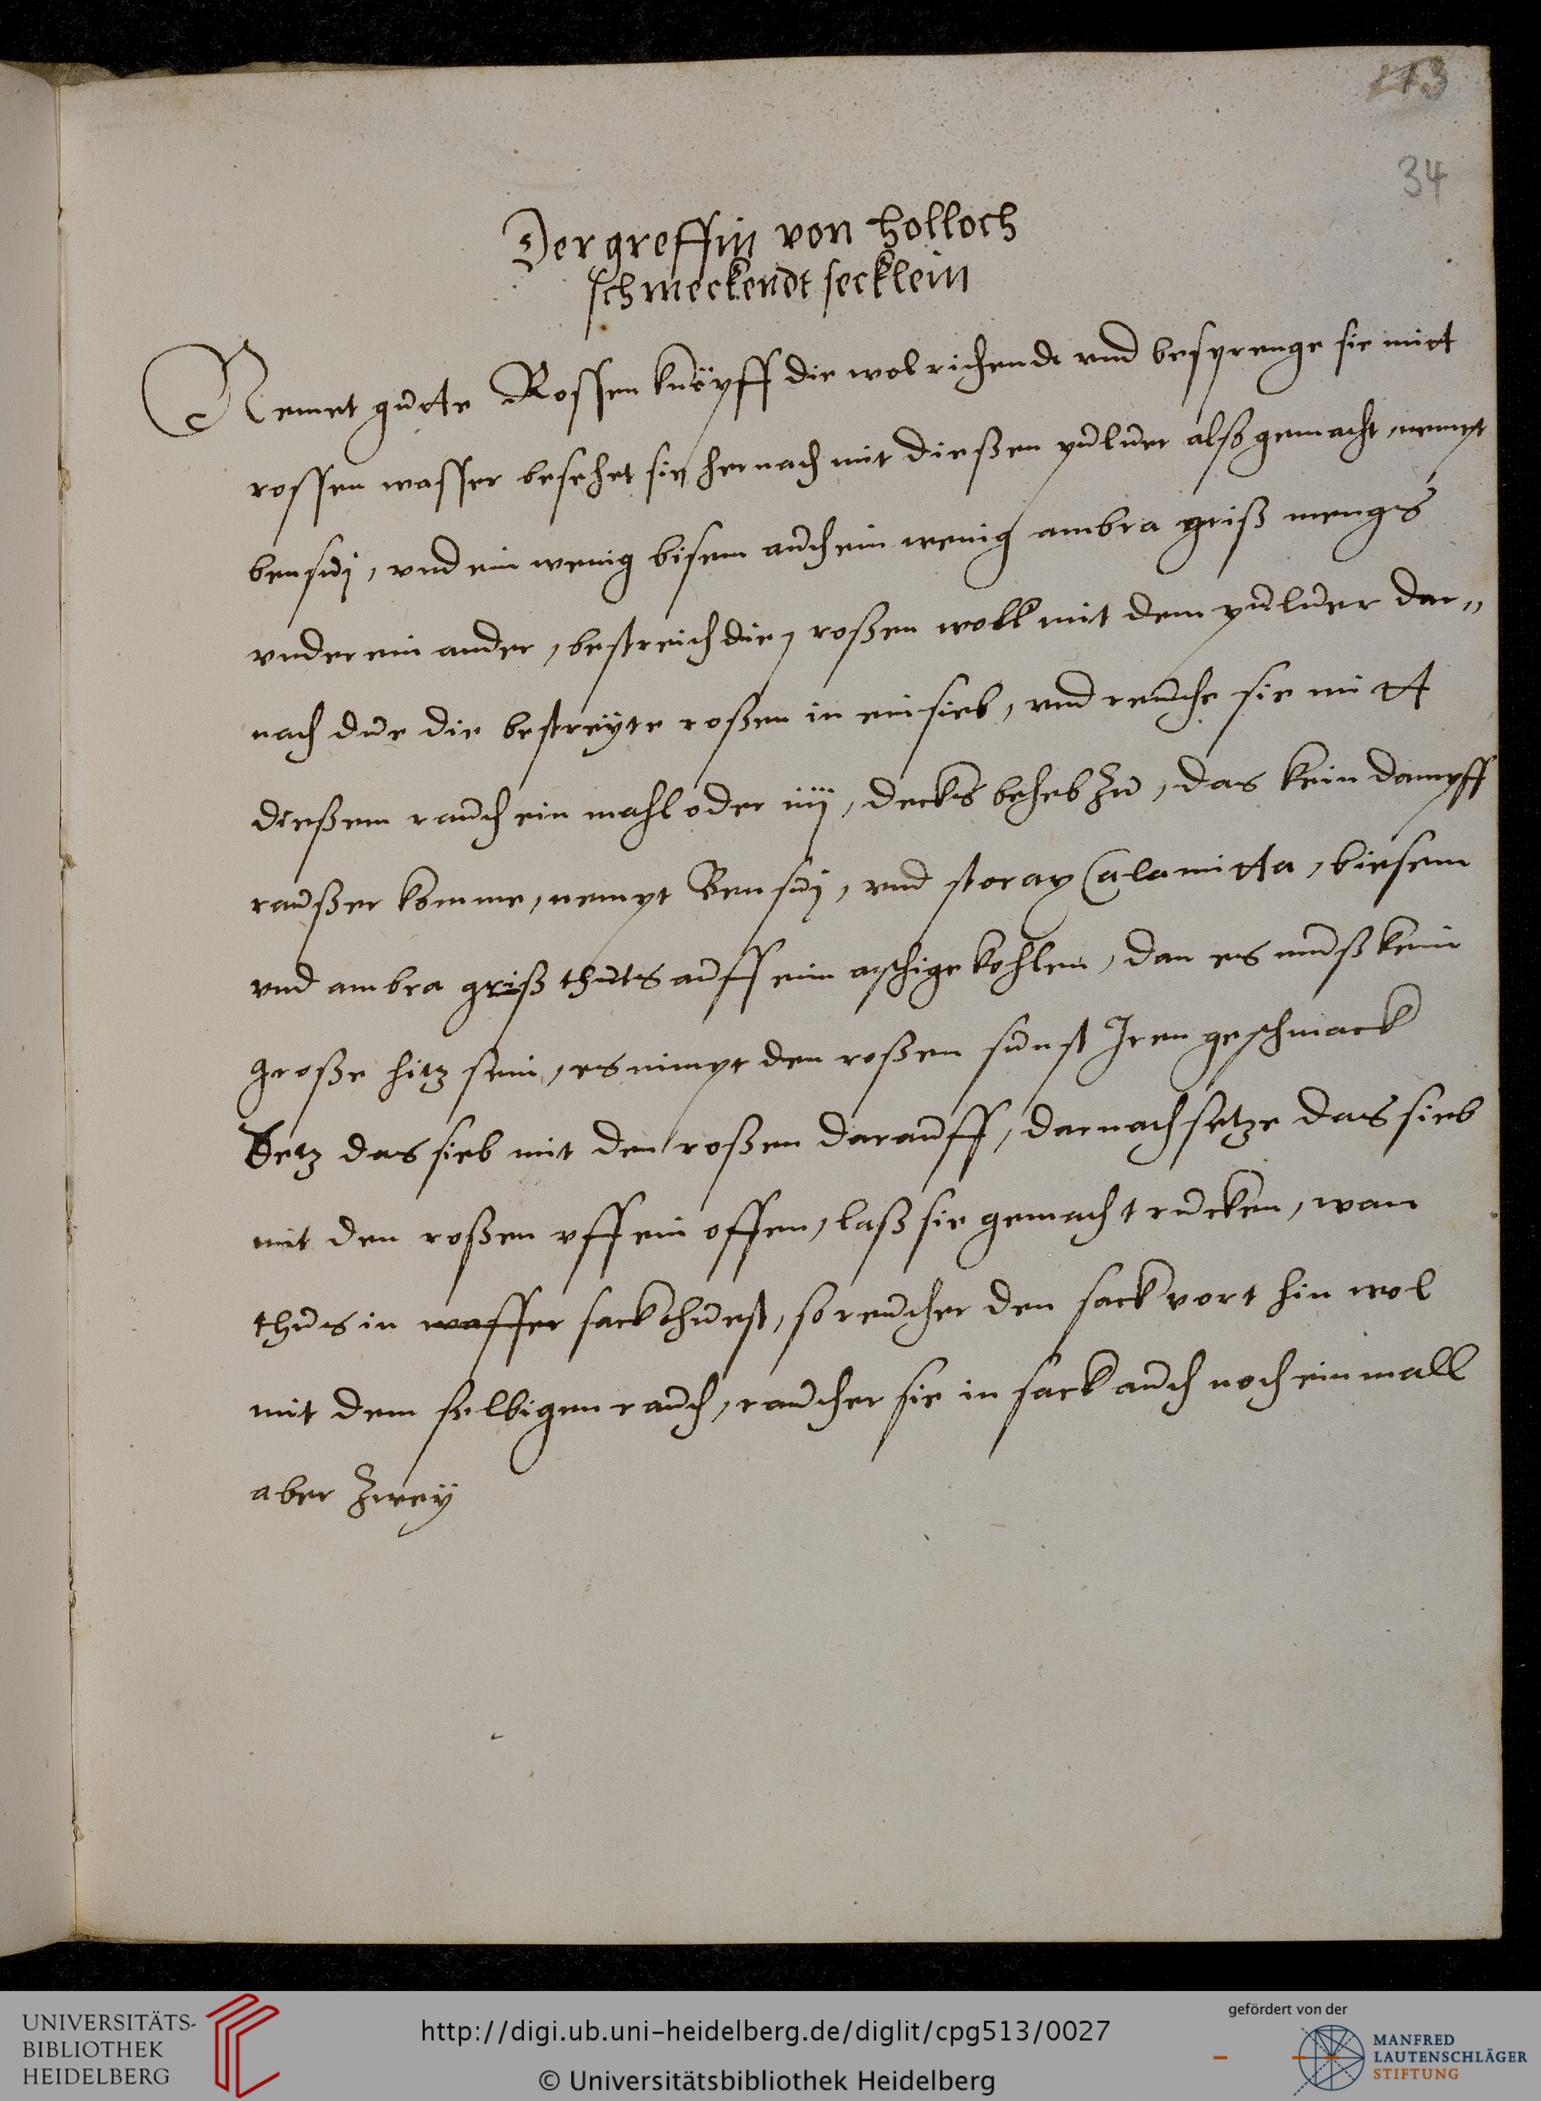 113
34
Der greffin von Holloch
schmeckendt secklein
Nemet gutte Rossen knöpff die wolrichendt vnd besprenge sie mitt
rossen wasser besehet sie hernach mit dießen puluer alß gemacht, nempt
bensui, vnd ein wenig bisem auch ein wenig ambra griß mengs
vnder ein ander, bestreich die roßen woll mit dem puluer dar„
nach due die bestreyte roßen in ein sieb, vnd reuche sie mitt
dießem rauch ein mahl oder iiij, decks beheb zu, das kein dampff
raußer komme, nempt Bensui, vnd storax Calamitta, biesem
vnd ambra griß thuts auff ein aschige kohlen, dan es muß kein
große hitz sein, es nimpt den roßen sunst Iren geschmack
Setz das sieb mit den roßen darauff, darnach setze das sieb
mit den roßen vff ein offen, laß sie gemach trucken, wan
thus in wasser sack thuest, so reucher den sack vort hin wol
mit dem selbigen rauch, raucher sie in sack auch noch ein mall
aber zwey
UNIVERSITÄTS-
BIBLIOTHEK
HEIDELBERG
http://digi.ub.uni-heidelberg.de/diglit/cpg513/0027
© Universitätsbibliothek Heidelberg
gefördert von der
MANFRED
LAUTENSCHLÄGER
STIFTUNG